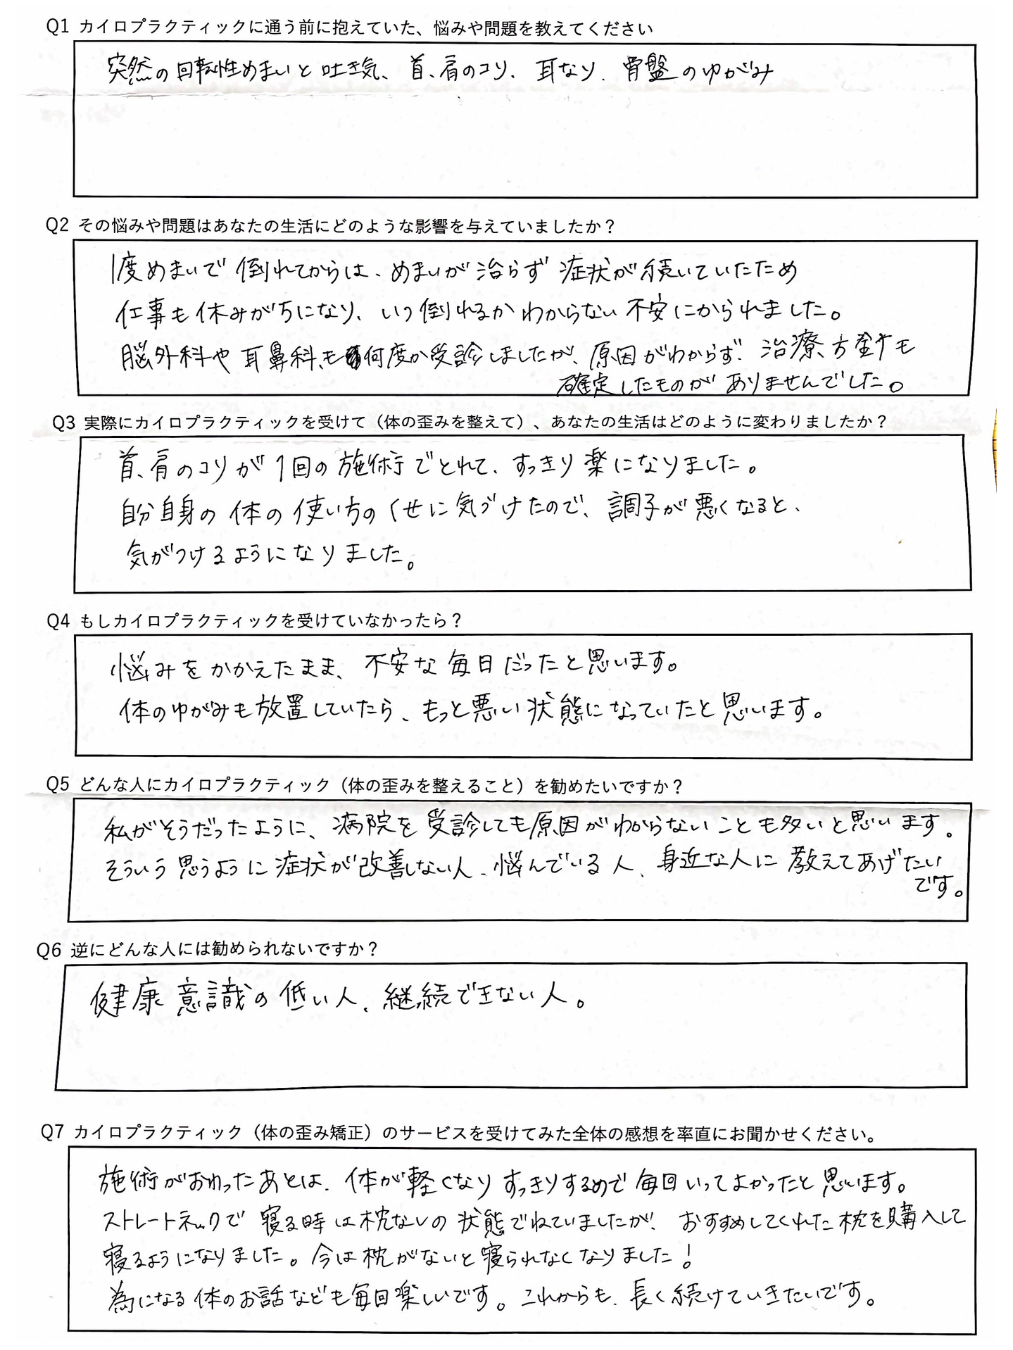 Q1 カイロプラクティックに通う前に抱えていた、悩みや問題を教えてください
突然の回転性めまいと吐き気、首、肩のコリ、耳なり、骨盤のゆがみ
Q2 その悩みや問題はあなたの生活にどのような影響を与えていましたか？
1度めまいで倒れてからは、めまいが治らず症状が続いていたため
仕事も休みがちになり、いつ倒れるかわからない不安にかられました。
脳外科や耳鼻科も何度か受診しましたが、原因がわからず、治療方針も
確定したものがありませんでした。
Q3 実際にカイロプラクティックを受けて（体の歪みを整えて）、あなたの生活はどのように変わりましたか？
首、肩のコリが1回の施術でとれて、すっきり楽になりました。
自分自身の体の使い方のくせに気づけたので、調子が悪くなると、
気がつけるようになりました。
Q4 もしカイロプラクティックを受けていなかったら？
悩みをかかえたまま、不安な毎日だったと思います。
体のゆがみも放置していたら、もっと悪い状態になっていたと思います。
Q5 どんな人にカイロプラクティック（体の歪みを整えること）を勧めたいですか？
私がそうだったように、病院を受診しても原因がわからないことも多いと思います。
そういう思うように症状が改善しない人、悩んでいる人、身近な人に教えてあげたい
です。
Q6 逆にどんな人には勧められないですか？
健康意識の低い人、継続できない人。
Q7 カイロプラクティック（体の歪み矯正）のサービスを受けてみた全体の感想を率直にお聞かせください。
施術がおわったあとは、体が軽くなりすっきりするので毎回いってよかったと思います。
ストレートネックで寝る時は枕ないの状態でねていましたが、おすすめしてくれた枕を購入して
寝るようになりました。今は枕がないと寝られなくなりました！
為になる体のお話なども毎回楽しいです。これからも、長く続けていきたいです。